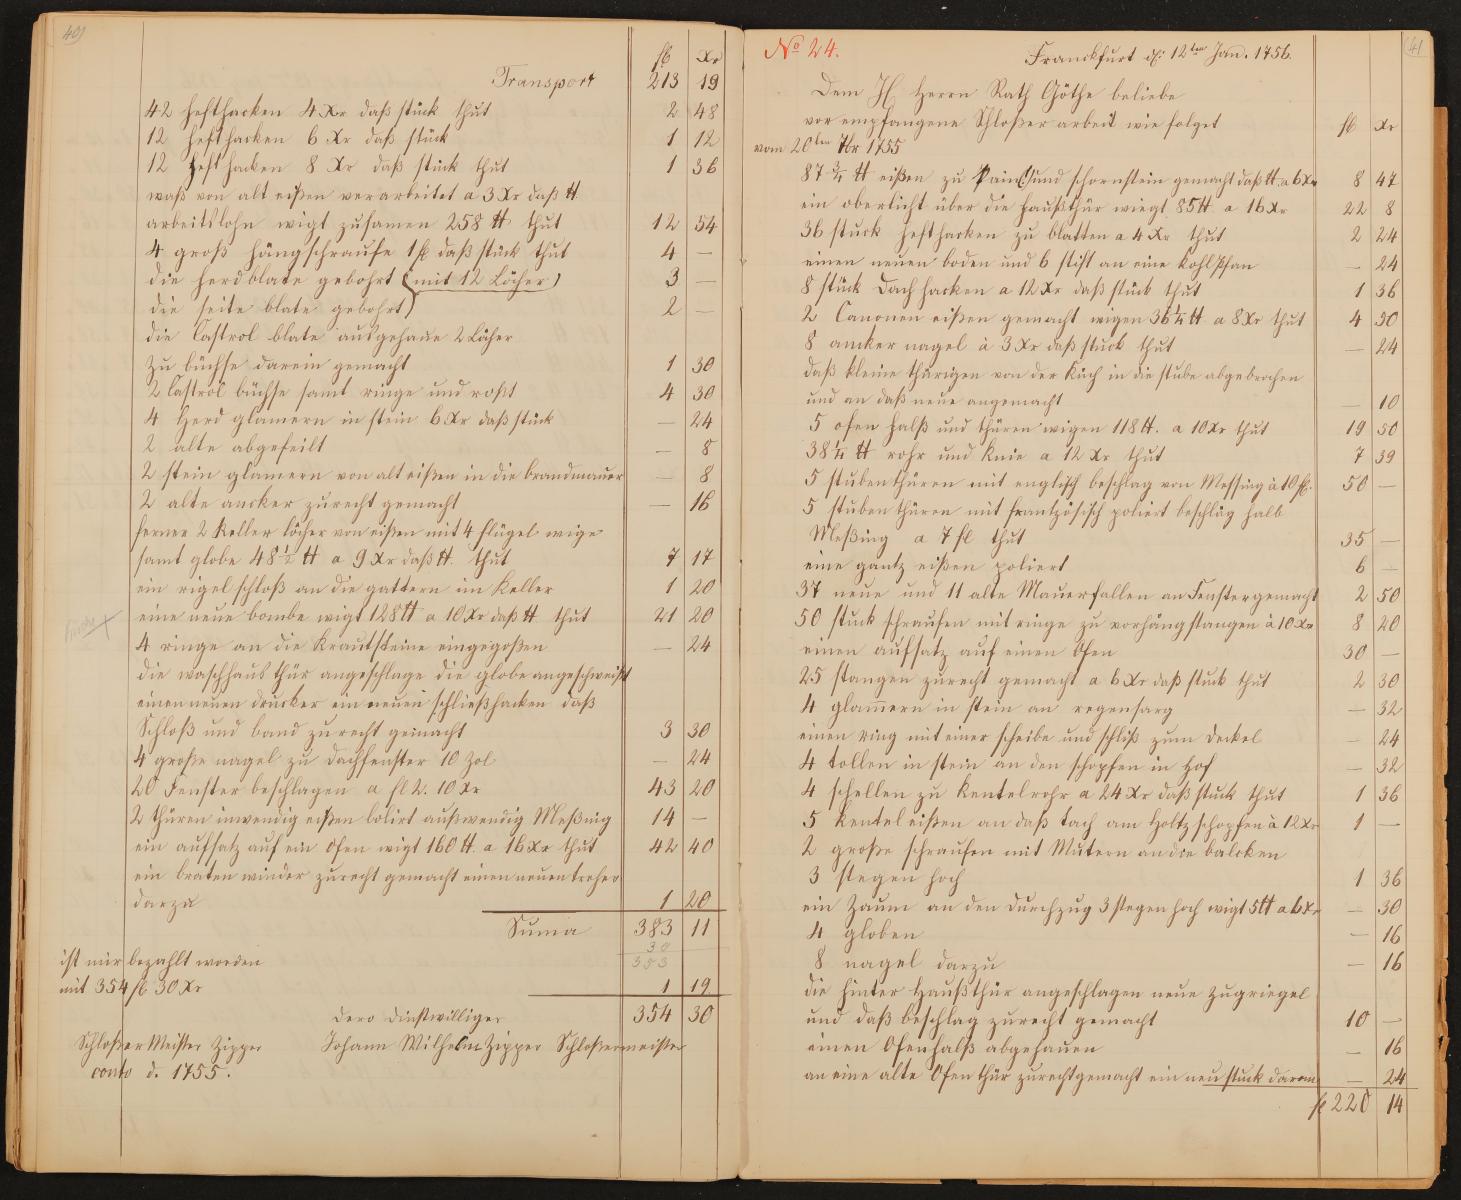 40)
fl Xr
Transport 213 19
42 hefthacken 4 Xr daß stück thut 2 48
12 hefthacken 6 Xr daß stück 1 12
12 hefthacken 8 Xr daß stück thut 1 36
waß von alt eißen verarbeitet a 3 Xr daß ℔
arbeitslohn wigt zusamen 258 ℔ thut 12 54
4 groß hängschraufe 1 fl daß stück thut 4 —
die herdblate gebohrt (mit 12 Löcher) 3 —
die seite blate gebohrt) 2 —
die Castrol blate ausgehaue 2 Löcher
zu büchse darein gemacht 1 30
2 Castrol büchse samt ringe und roßt 4 30
4 Herd glamern in stein 6 Xr daß stück — 24
2 alte abgefeilt — 8
2 stein glamern von alt eißen in die brandmauer — 8
2 alte ancker zurecht gemacht — 16
ferner 2 Keller löcher von eißen mit 4 flügel wige
samt globe 48 1/2 ℔ a 9 Xr daß ℔. thut 7 17
ein rigel schloß an die gattern im Keller 1 20
eine neue bombe wigt 128 ℔ a 10 Xr daß ℔ thut 21 20
4 ringe an die Krautsteine eingegoßen — 24
die waschhaus thür angeschlage die globe angeschweißt
einen neuen drucker ein neuen schließhacken daß
Schloß und band zurecht gemacht 3 30
4 große nagel zu dachfenster 10 zol — 24
20 Fenster beschlagen a fl 2. 10 Xr 43 20
2 thüren inwendig eißen bolirt außwendig Meßing 14 —
ein aufsatz auf ein Ofen wigt 160 ℔. a 16 Xr thut 42 40
ein braten winder zurecht gemacht einen neuen treher
darzu 1 20
Suma 383 11
30
353
ist mir bezahlt worden
mit 354 fl 30 Xr 1 19
354 30
Dero Dinstwilliger
Schloßer Meister Zipper Johann Wilhelm Zipper Schloßermeister
conto d. 1755.
41
No 24. Franckfurt d: 12ten Jan. 1756.
Dem H. Herrn Rath Göthe beliebe
vor empfangene Schloßer arbeit wie folget fl Xr
vom 20ten 7br 1755
87 3/4 ℔ eißen zu und schornstein gemacht daß ℔. a 6 Xr 8 47
ein oberlicht über die haußthür wiegt 85 ℔ a 16 Xr 22 8
36 stuck hefthacken zu blatten a 4 Xr thut 2 24
einen neuen boden und 6 stift an eine Kohlpfan — 24
8 stück Dachhacken a 12 Xr daß stück thut 1 36
2 Canonen eißen gemacht wigen 36 1/4 ℔ a 8 Xr thut 4 50
8 amker nagel à 3 Xr daß stuck thut — 24
daß kleine thürigen von der Küch in die stube abgebrochen
und an daß neue angemacht — 10
5 ofen halß und thüren wigen 118 ℔. a 10 Xr thut 19 50
38 1/4 ℔ rohr und Knie a 12 Xr thut 7 39
5 stubenthüren mit englisch beschlag von Messing à 10 fl. 50 —
5 stubenthüren mit frantzösisch poliert beschlag halb
Meßing a 7 fl thut 35 —
eine gantz eißen poliert 6 —
37 neue und 11 alte Mauerfallen an Fenster gemacht 2 50
50 stuck schraufen mit ringe zu vorhängstangen à 10 Xr 8 20
einen aufsatz auf einen Ofen 30 —
25 stangen zurecht gemacht a 6 Xr daß stuck thut 2 30
4 glam̄ern in stein an regensarg — 32
einen ring mit einer scheibe und schliß zum deckel — 24
4 tollen in stein an den schopfen in Hof — 32
4 schellen zu Kentelrohr a 24 Xr daß stuck thut 1 36
5 Kentel eißen an daß tach am Holtz schopfen à 12 Xr 1 —
2 große schraufen mit Mutern an die balcken
3 stegen hoch 1 36
ein Zaum an den Durchzug 3 stegen hoch wigt 5 ℔ a 6 Xr — 30
4 globen — 16
8 nagel darzu — 16
die hinter Haußthür angeschlagen neue Zugriegel
und daß beschlag zurecht gemacht 10 —
einen Ofenhalß abgehauen — 16
an eine alte Ofen thür zurechtgemacht ein neu stuck daran — 24
fl 220 14